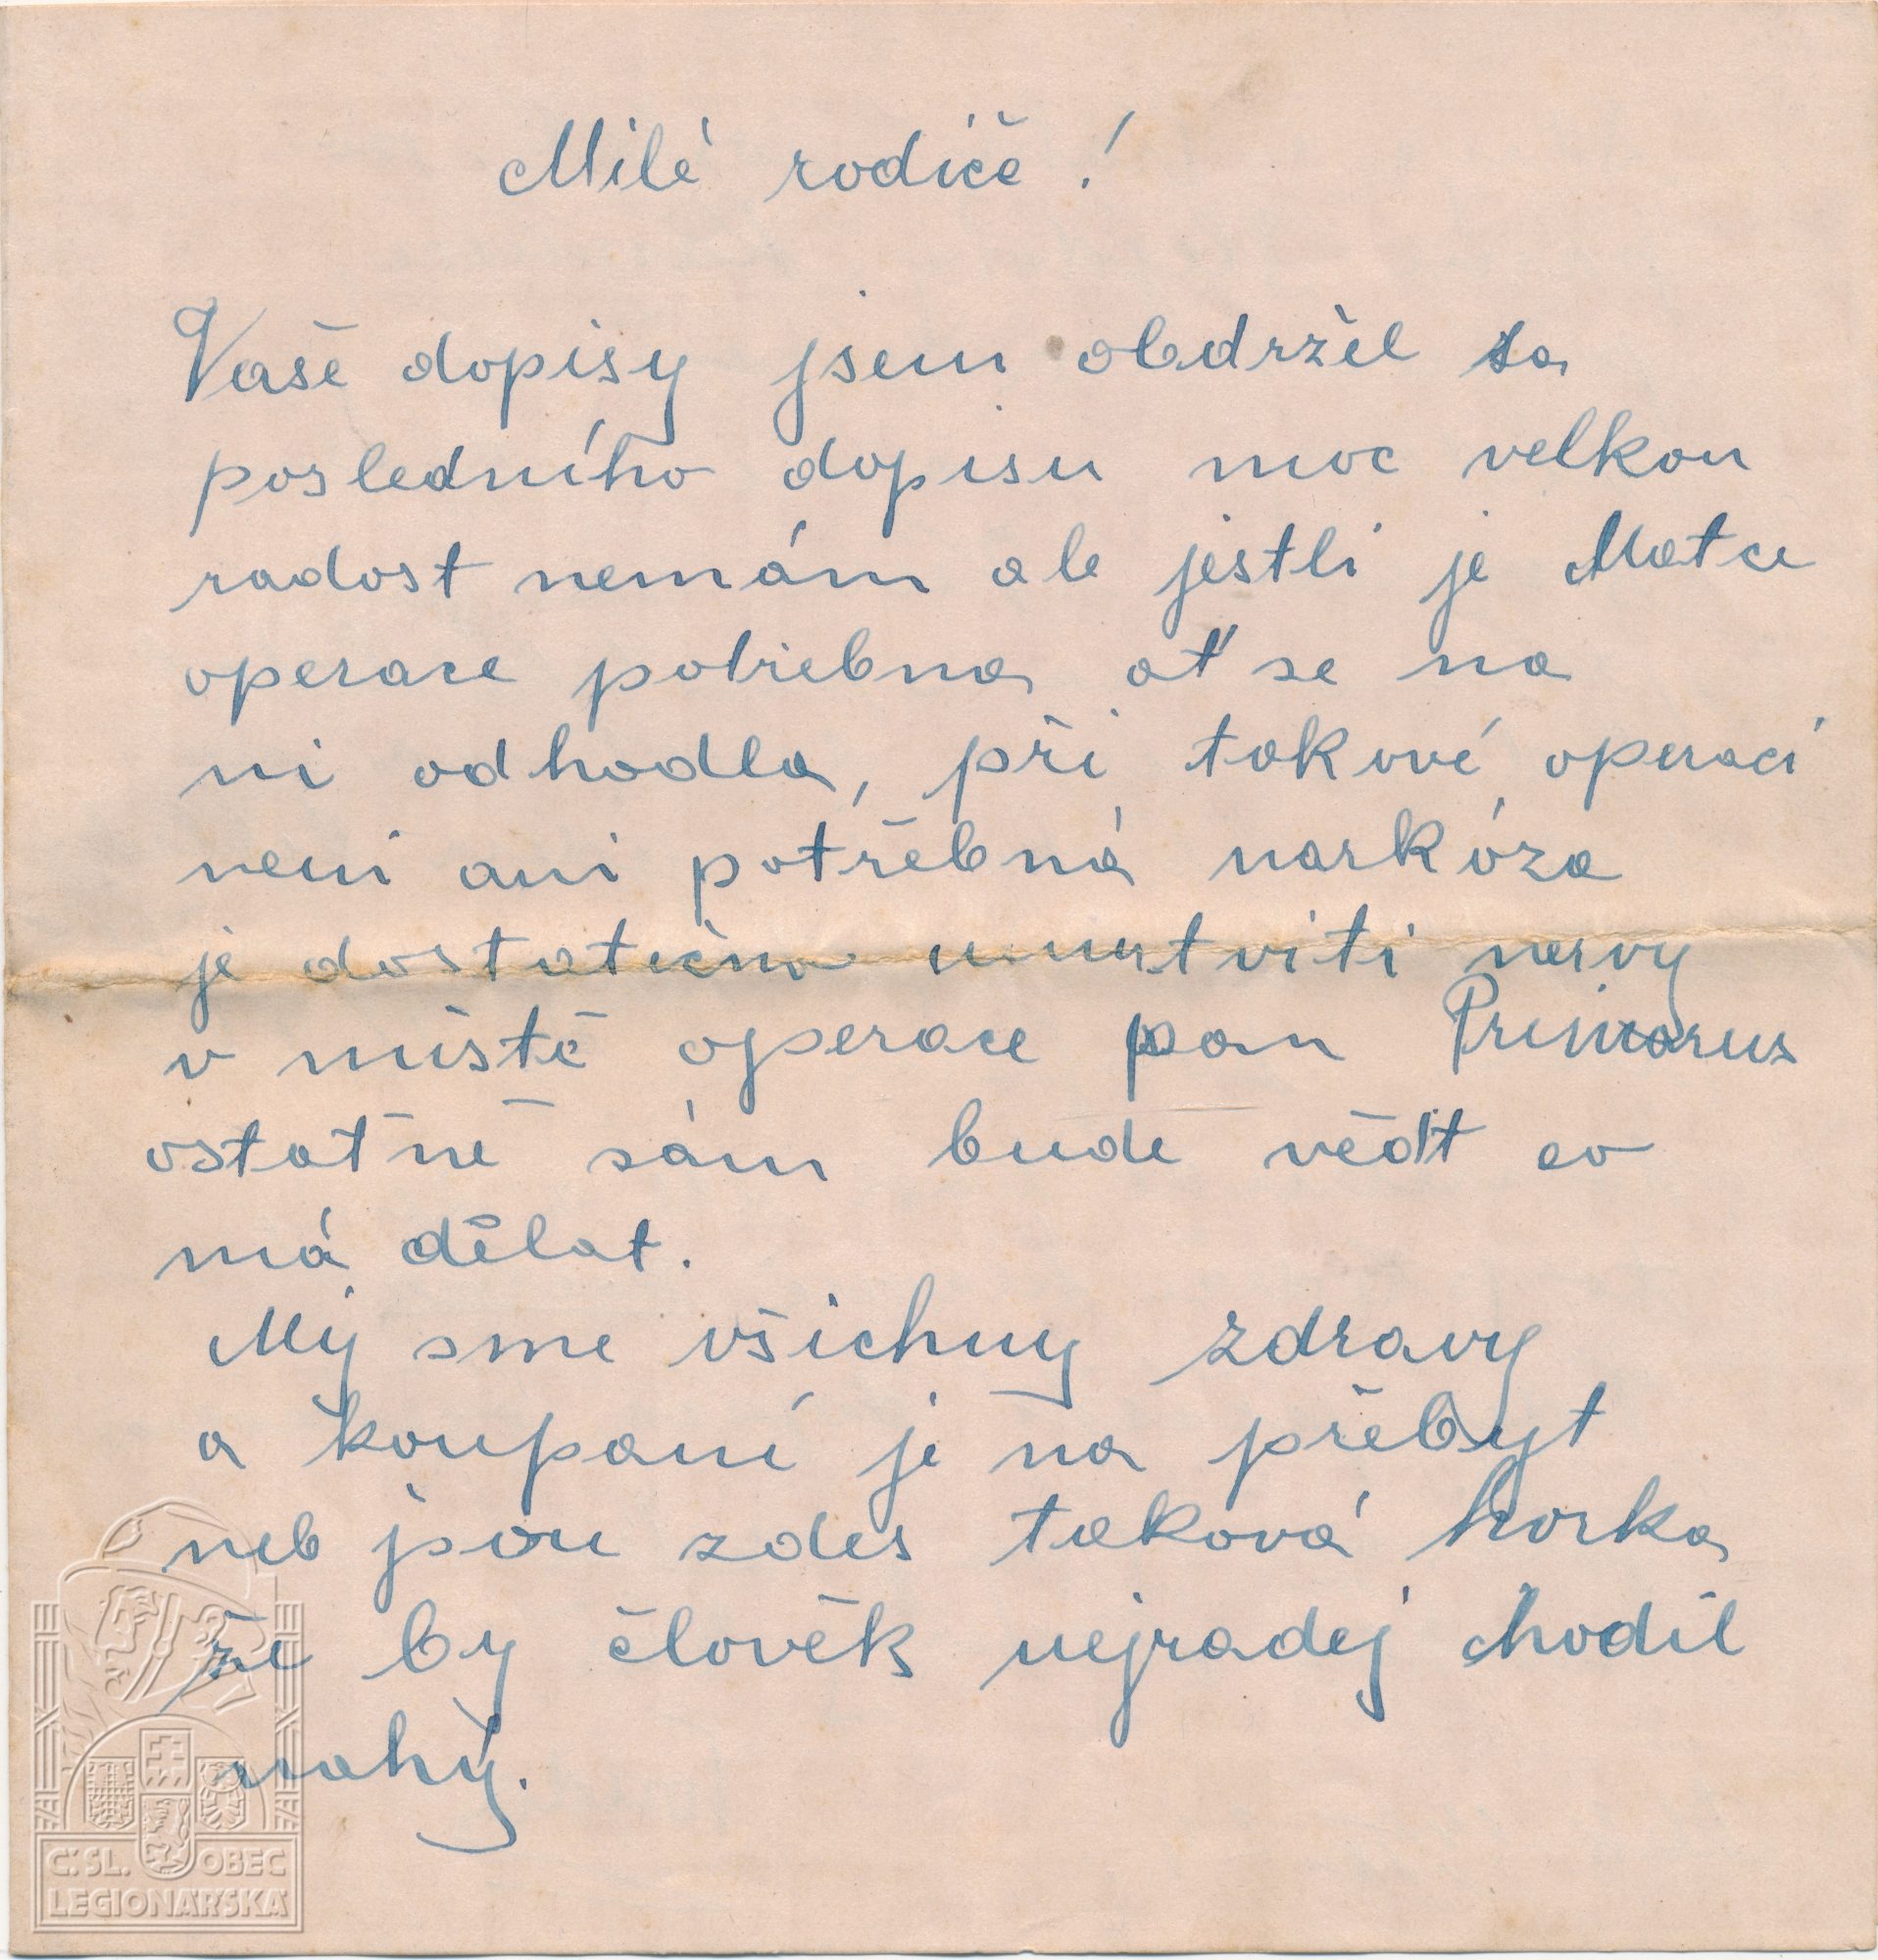 Milé rodiče!
Vaše dopisy jsem obdržel za
posledního dopisu moc velkou
radost nemám ale jestli je Matce
operace potřebna ať se na
ni odhodla, při takové operaci
neni ani potřebná narkóza
je dostatečno umrtviti nervy
v místě operace pan Primarus
ostatně sám bude vědět co
má dělat.
My sme všichny zdravy
a koupaní je na přebyt
neb jsou zdes taková horka
že by člověk nejradej chodil
nahý.
Č.SL. OBEC
LEGIONÁŘSKÁ